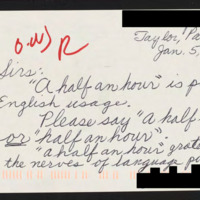 Taylor, Pa
Jan. 5
Sirs:
"A half an hour" is p
English usage.
Please say "a half
or "half an hour".
"a half an hour" grate
the nerves of language pu